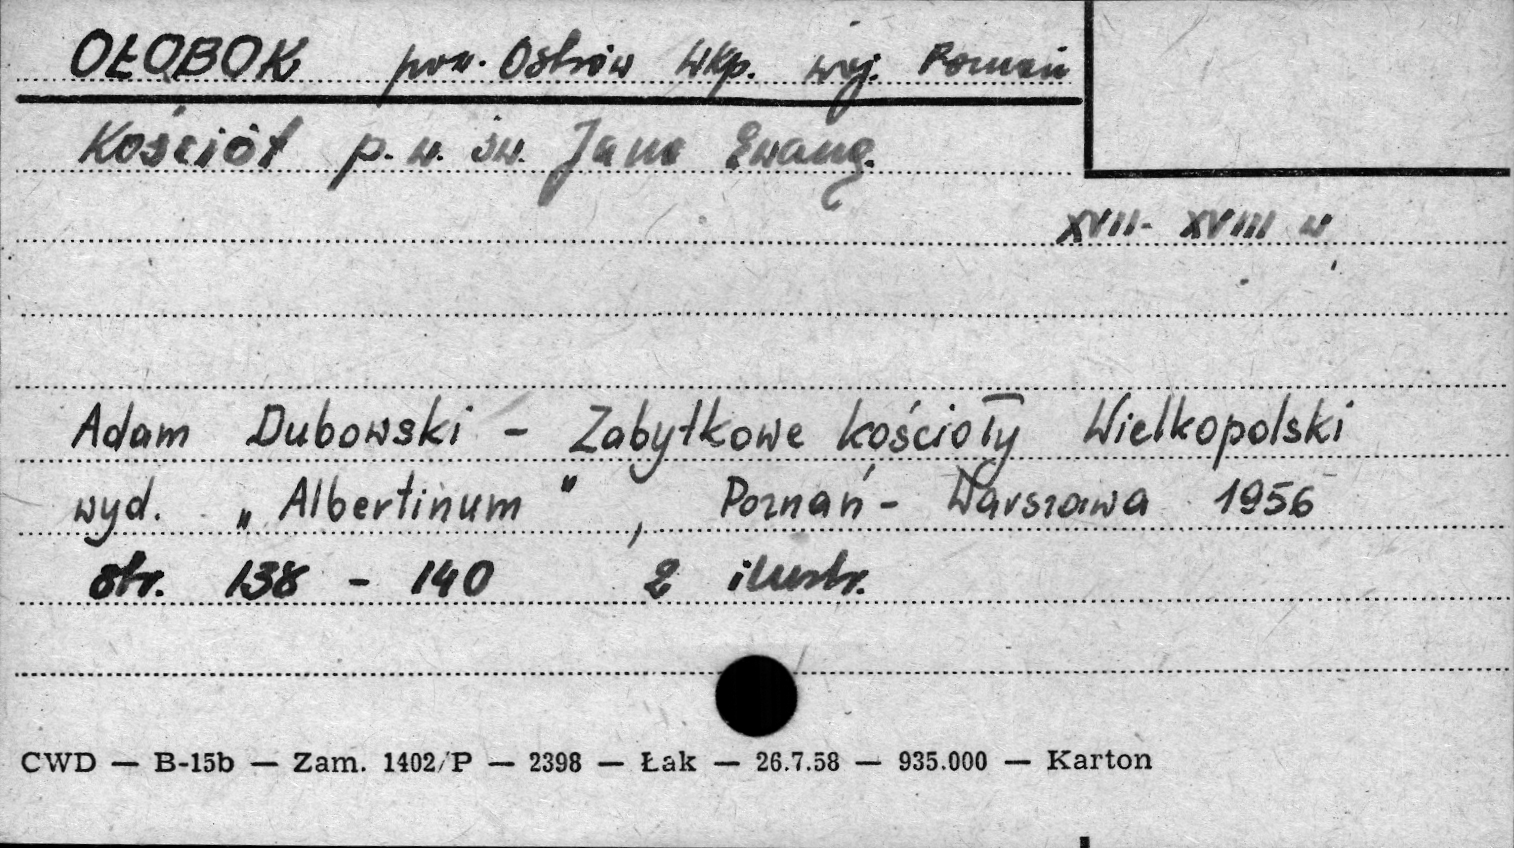 OŁOBOK pow. Ostrów Wkp. woj. Poznań
Kościół p.w. św. Jana Ewang.
XVII - XVIII w
Adam Dubowski - Zabytkowe kościoły Wielkopolski
wyd. „Albertinum", Poznań - Warszawa 1956
str. 138 - 140 2 ilustr.
CWD — B-15b — Zam. 1402/P — 2398 — Łak — 26.7.58 — 935.000 — Karton